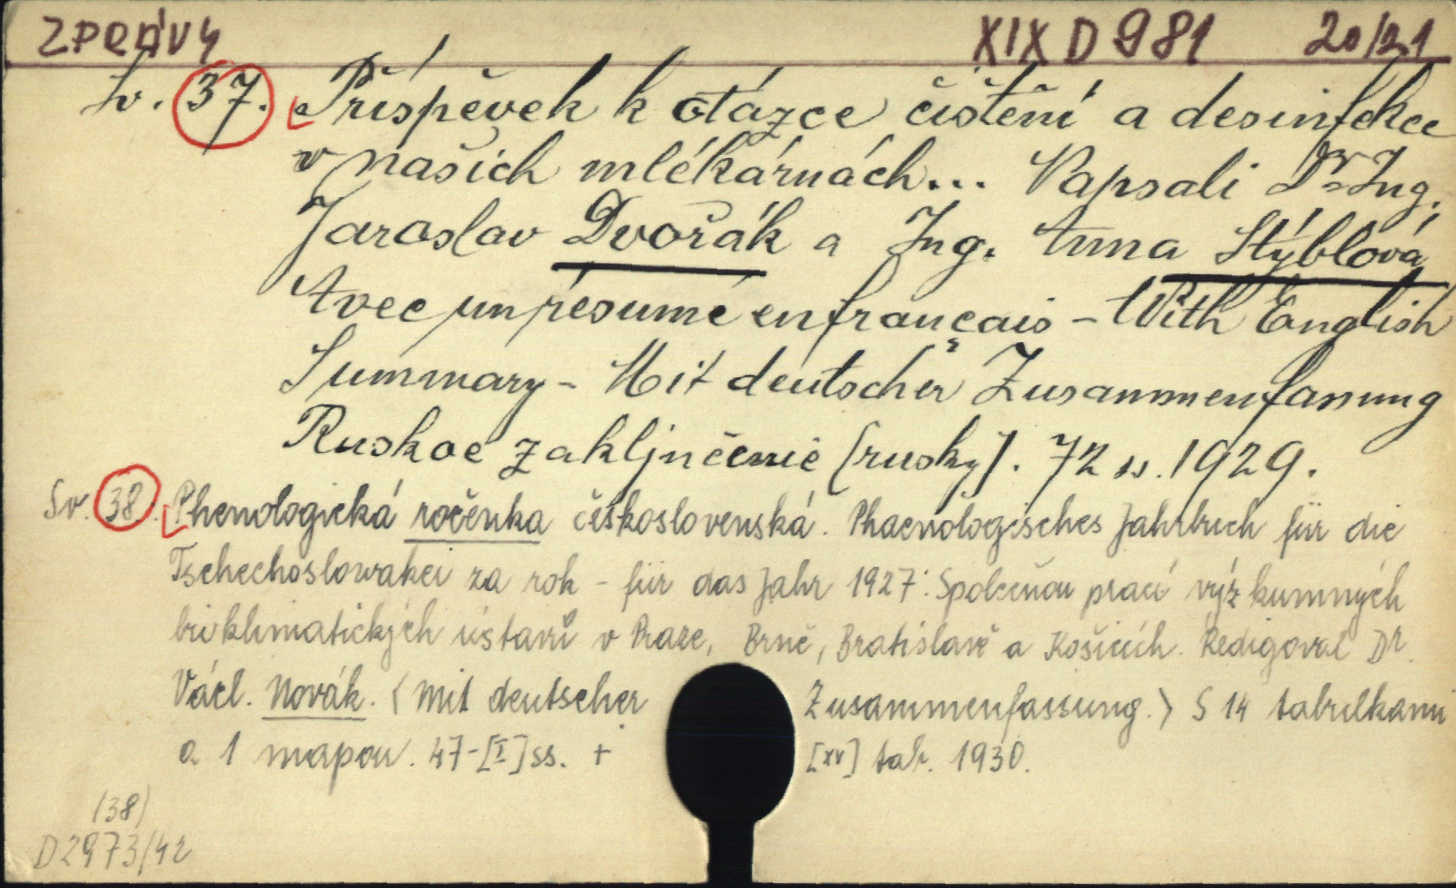 ZPRÁVY XIX D 981 20/21
Sv. 37. Příspěvek k otázce čištění a desinfekce
v našich mlékárnách... Napsali Dr Ing.
Jaroslav Dvořák a Ing. Anna Stýblová
Avec un résumé en français - With English
Summary - Mit deutscher Zusammenfassung
Ruskoe zaključenie [rusky]. 72 ss. 1929.
Sv. 38. Phenologická ročenka československá. Phaenologisches Jahrbuch für die
Tschechoslowakei za rok - für das Jahr 1927. Společnou prací výzkumných
bioklimatických ústavů v Praze, Brně, Bratislavě a Košicích. Redigoval Dr.
Václ. Novák. <Mit deutscher Zusammenfassung.> S 14 tabulkami
a 1 mapou. 47-[I] ss. + [XV] tab. 1930.
(38)
D2973/42